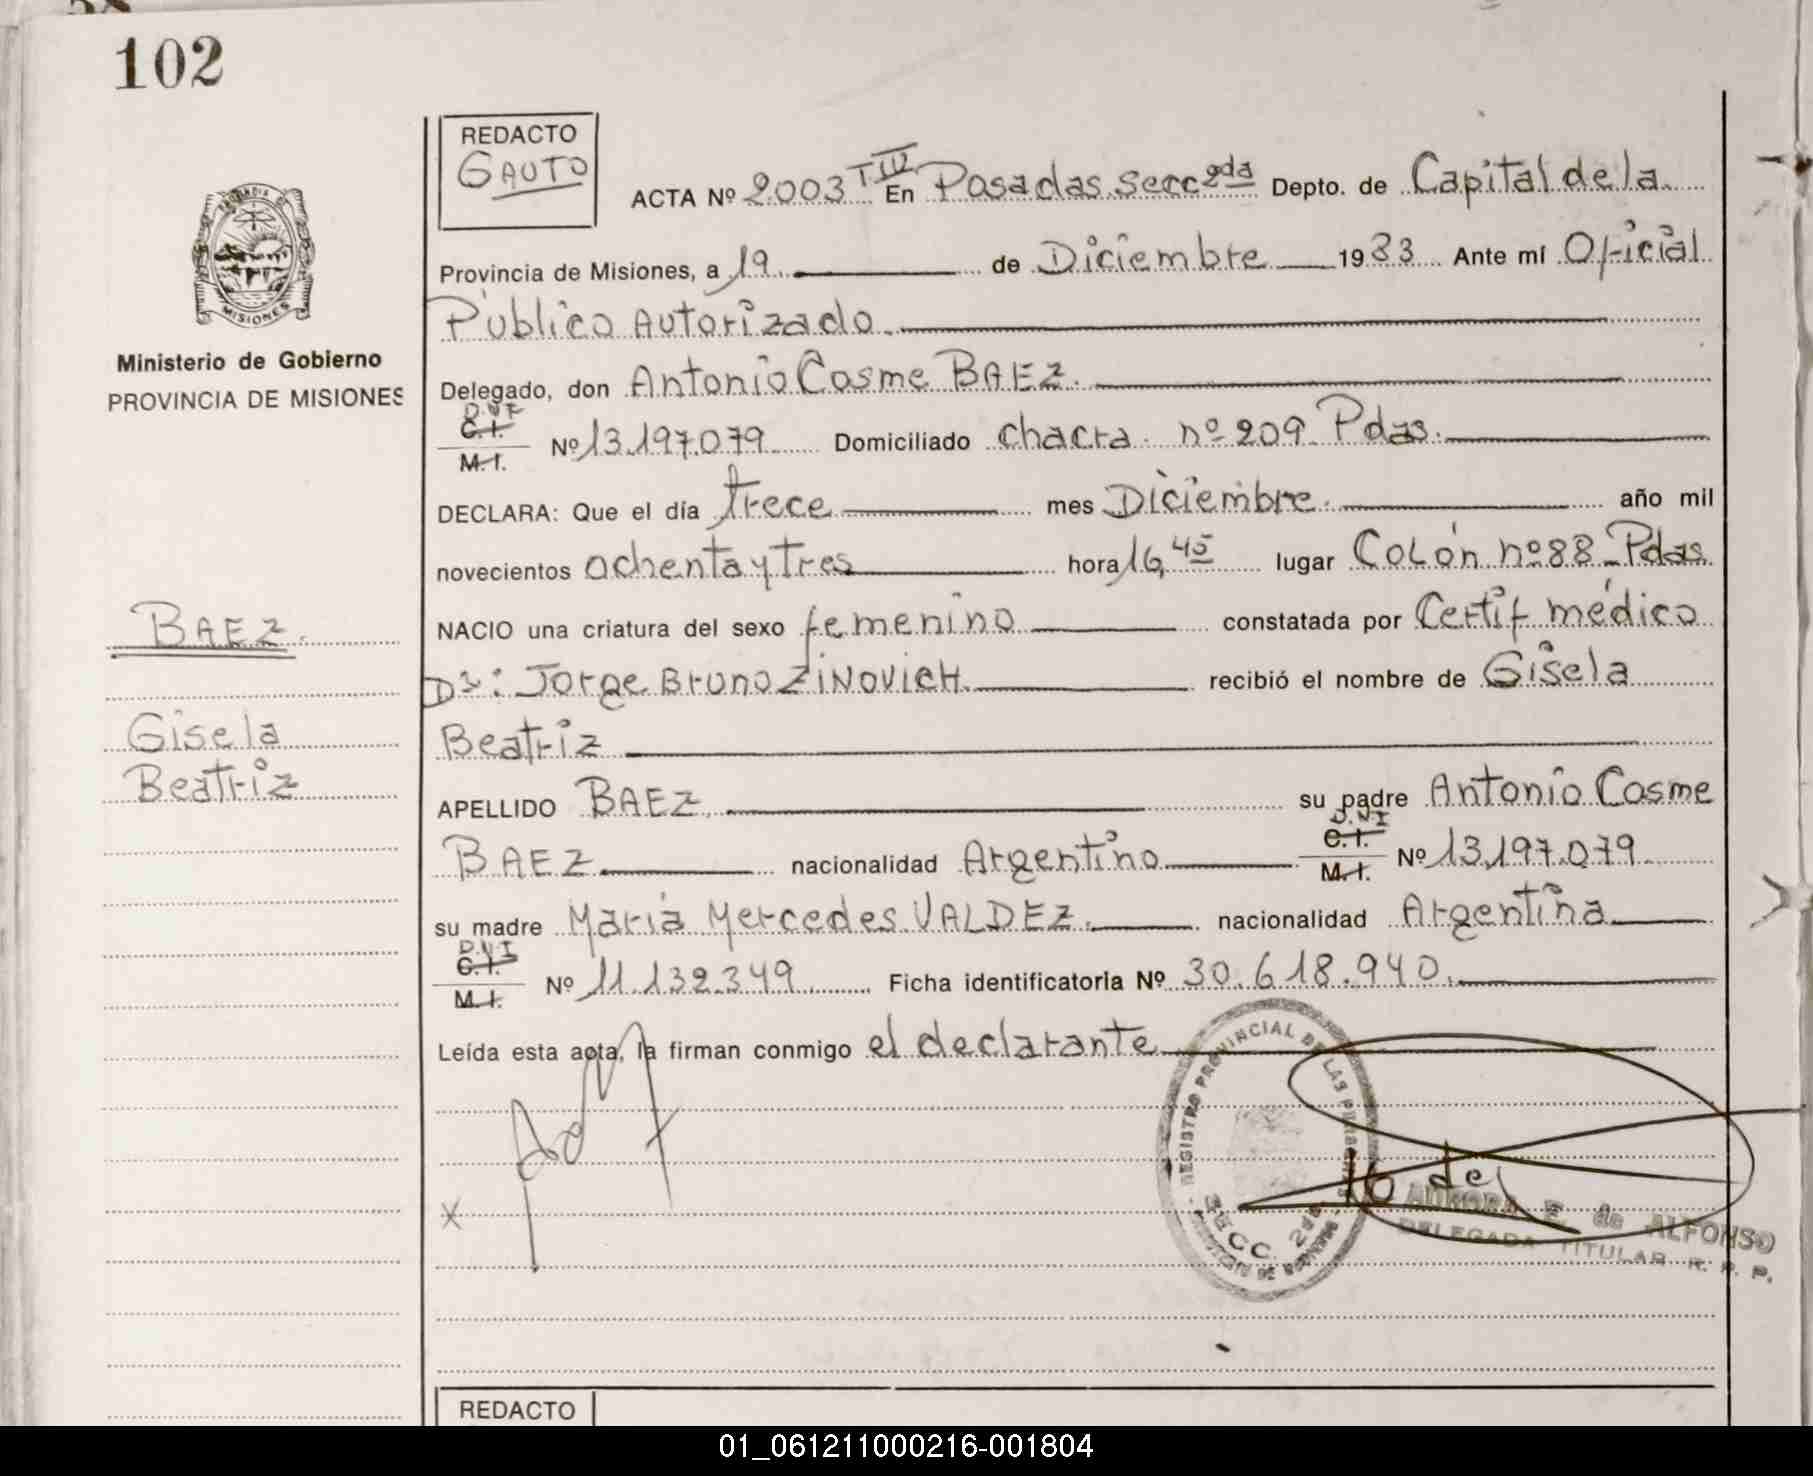 102
REDACTO
GAUTO
ACTA Nº 2003 TIII En Posadas secc 2da Depto. de Capital de la
Provincia de Misiones, a 19 de Diciembre 1983 Ante mí Oficial
Público Autorizado
MISIONES
Ministerio de Gobierno
PROVINCIA DE MISIONES
Delegado, don Antonio Cosme BAEZ.
D.N.I
C.I.
M.I.
Nº 13.197.079 Domiciliado chacra nº 209 Pdas.
DECLARA: Que el día trece mes Diciembre. año mil
novecientos ochenta y tres hora 16,45 lugar COLón nº 88 Pdas.
BAEZ.
NACIO una criatura del sexo femenino constatada por Certif médico
Dr: Jorge Bruno ZINOVICH. recibió el nombre de Gisela
Gisela
Beatriz
Beatriz
APELLIDO BAEZ. su padre Antonio Cosme
BAEZ nacionalidad Argentino
D.N.I
C.I.
M.I.
Nº 13.197.079
su madre María Mercedes VALDEZ. nacionalidad Argentina
D.N.I
C.I.
M.I.
Nº 11.132.349 Ficha identificatoria Nº 30.618.940.
Leída esta acta, la firman conmigo el declarante
REGISTRO PROVINCIAL DE LAS PERSONAS
SECC. 2da
AURORA E. de ALFONSO
DELEGADA TITULAR R. P. P.
REDACTO
01_061211000216-001804